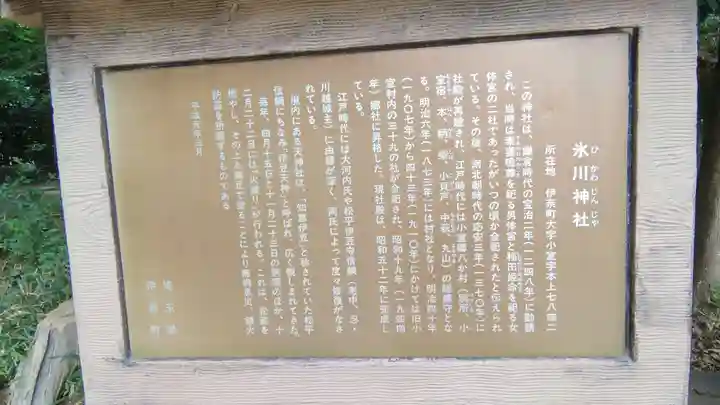 ひかわじんじゃ
氷川神社
所在地 伊奈町大字小室字本上七八四二
この神社は、鎌倉時代の宝治二年(一二四八年)に勧請
され、当時は素戔嗚尊を祀る男体宮と稲田姫命を祀る女
体宮の二社であったがいつの頃か合祀されたと伝えられ
ている。その後、南北朝時代の応安三年(一三七〇年)に
社殿が再建され、江戸時代には小室郷八か村(別所、小
室宿、本、柄、柴、小貝戸、中荻、丸山)の総鎮守とな
る。明治六年(一八七三年)には村社となり、明治四十年
(一九〇七年)から四十三年(一九一〇年)にかけては旧小
室村内の三十九の社が合祀され、昭和十九年(一九四四
年)郷社に昇格した。現社殿は、昭和五十二年に完成し
ている。
江戸時代には大河内氏や松平伊豆守信綱(老中、忍・
川越城主)に由緒が深く、両氏によって度々修復がなさ
れている。
境内にある天神社は、“知恵伊豆”と称されていた松平
信綱にちなみ“伊豆天神”と呼ばれ、広く親しまれてきた。
毎年、四月十五日と十一月二十三日の例祭のほか、十
二月二十二日には“火渡り”が行われる。これは、
燃やし、その上を素足で渡ることにより無病息災、鎮火
を祈願するものである
平成 年三月
埼玉県
伊奈町